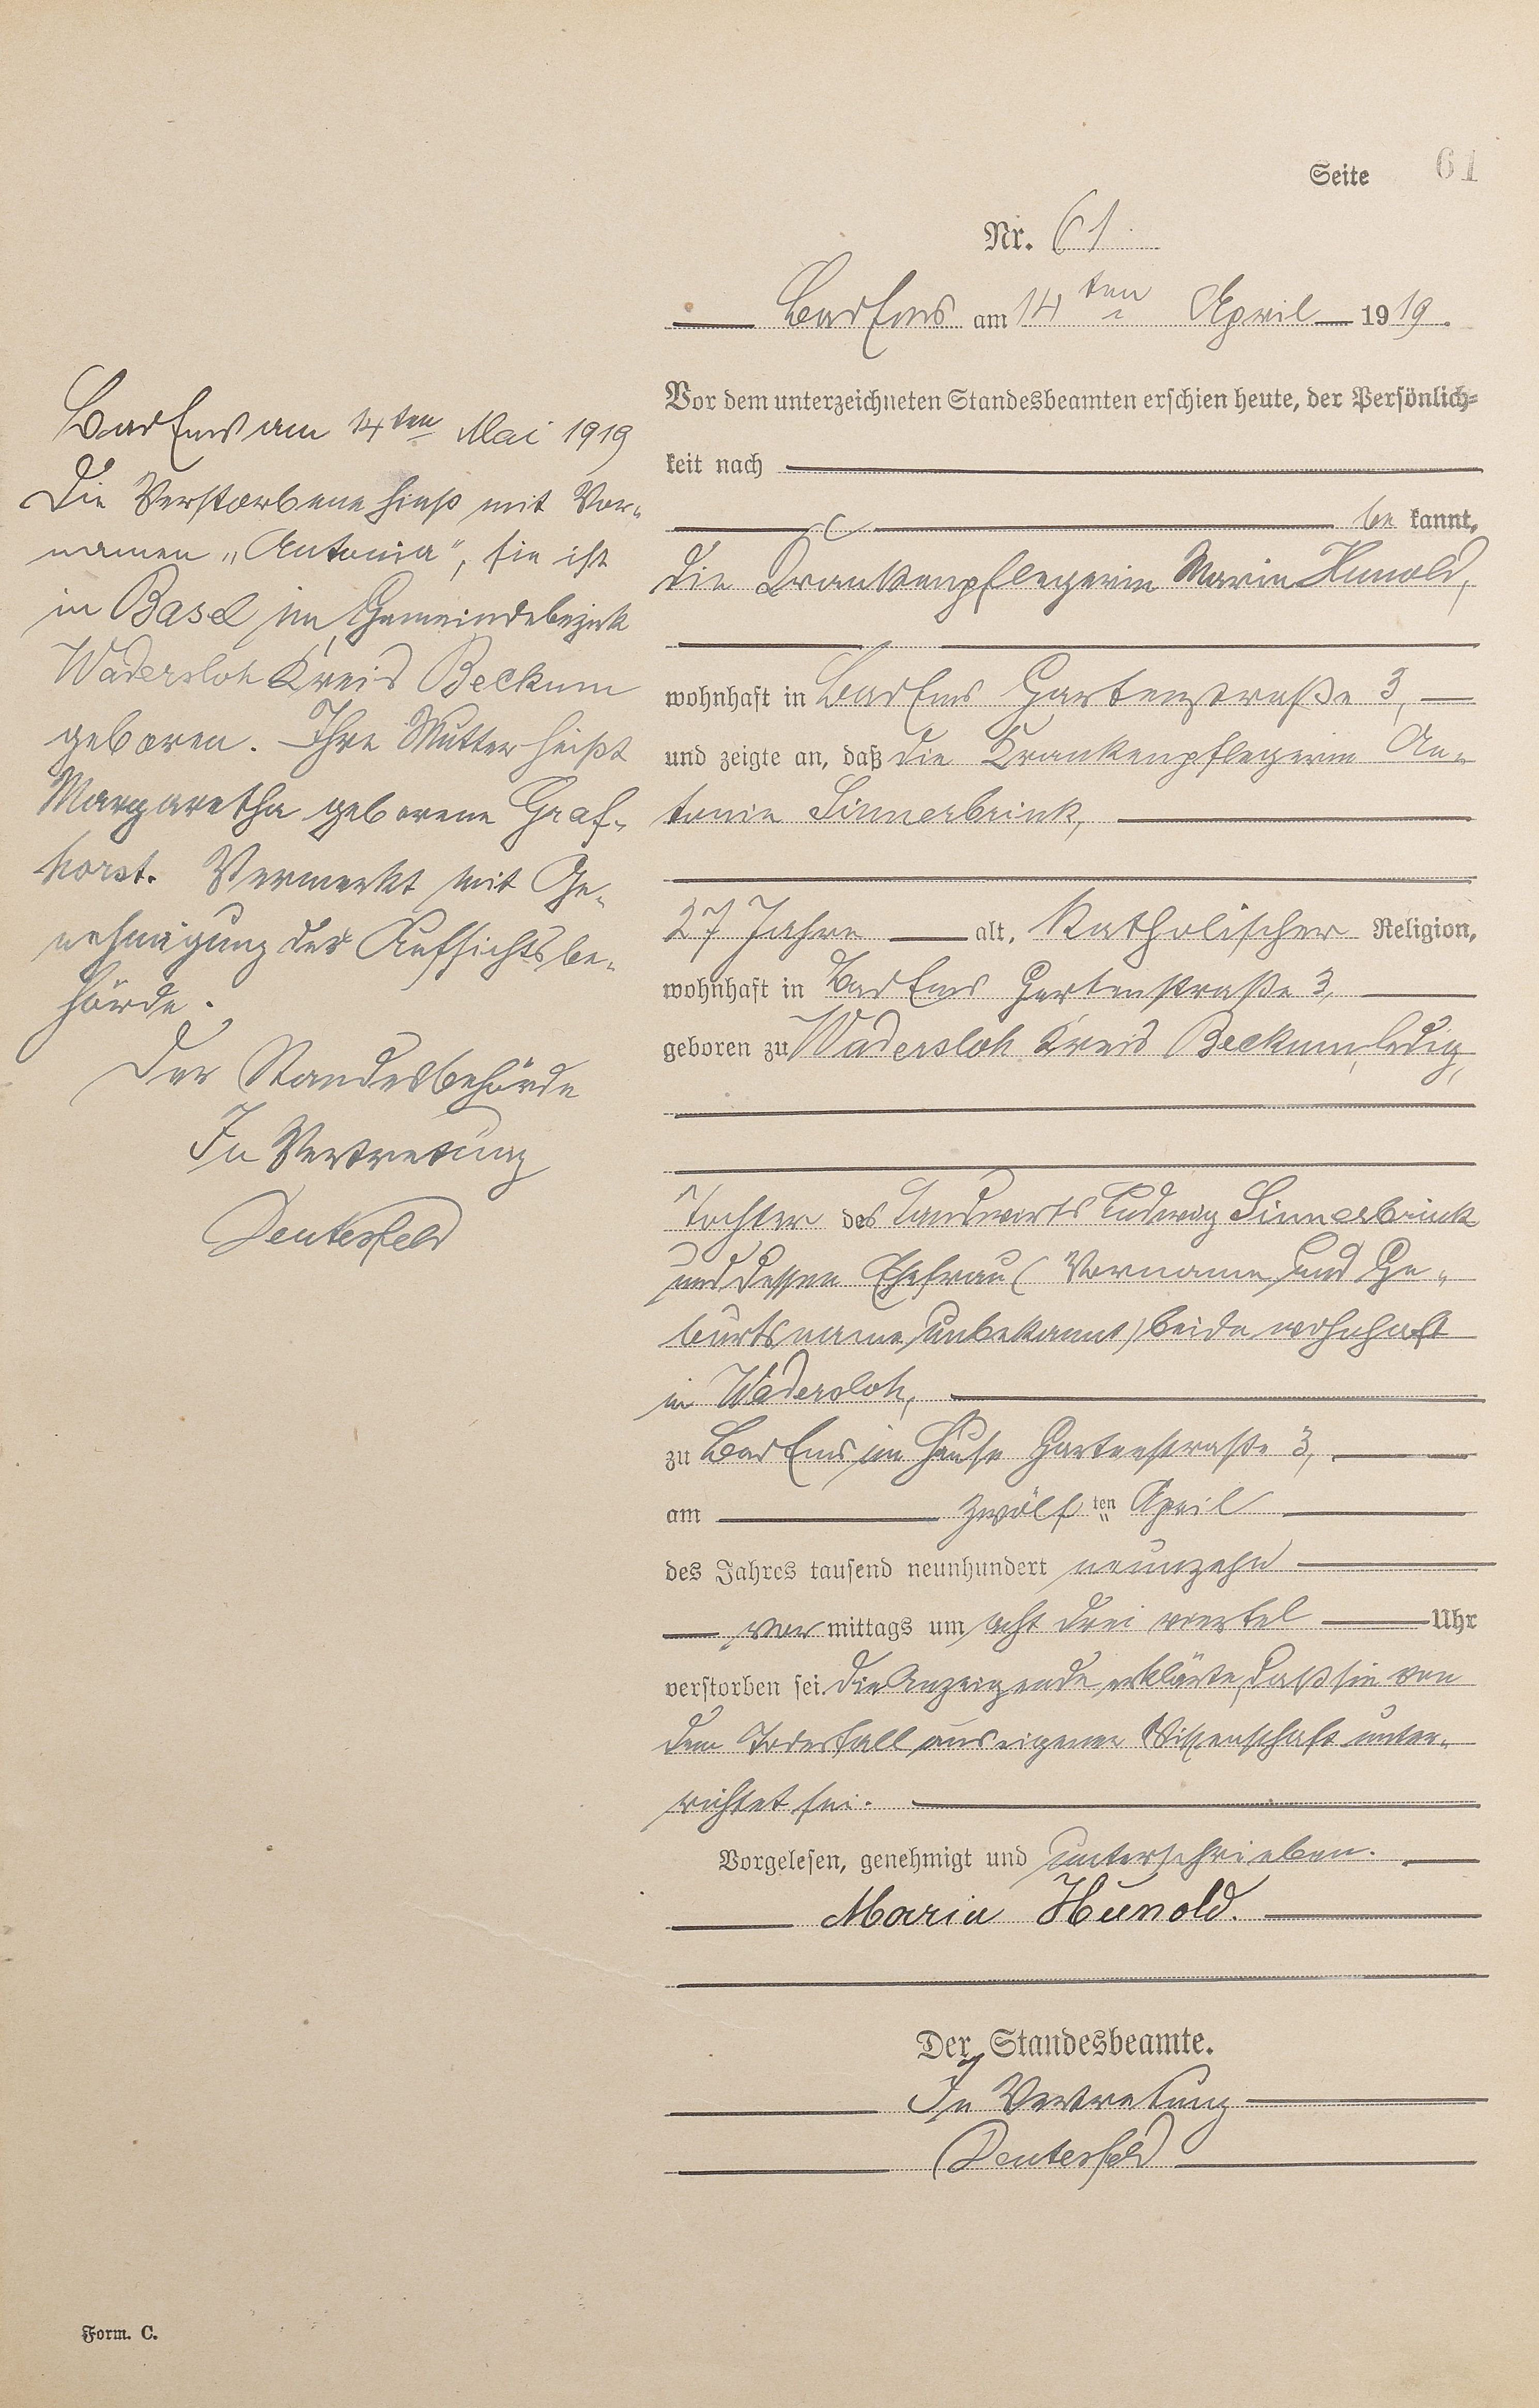 Seite 61
Nr. 61
Bad Ems am 14ten April 1919.
Vor dem unterzeichneten Standesbeamten erschien heute, der Persönlich-
keit nach
be kannt,
die Krankenpflegerin Maria Hunold,
wohnhaft in Bad Ems Gartenstraße 3,
und zeigte an, daß die Krankenpflegerin An-
tonie Sinnerbrink,
27 Jahre alt, katholischer Religion,
wohnhaft in Bad Ems Gartenstraße 3,
geboren zu Wadersloh Kreis Beckum, ledig,
Tochter des Landwirts Ludwig Sinnerbrink
und dessen Ehefrau (Vorname und Ge-
burtsname unbekannt) beide wohnhaft
in Wadersloh,
zu Bad Ems im Hause Gartenstraße 3,
am zwölf ten April
des Jahres tausend neunhundert neunzehn
vor mittags um acht drei viertel Uhr
verstorben sei. Die Anzeigende erklärte, daß sie von
dem Todesfall aus eigener Wissenschaft unter-
richtet sei.
Vorgelesen, genehmigt und unterschrieben.
Maria Hunold.
Der Standesbeamte.
In Vertretung
Deutesfeld
Bad Ems am 14ten Mai 1919
Die Verstorbene hieß mit Vor-
namen „Antonia", sie ist
in Basel im Gemeindebezirk
Wadersloh Kreis Beckum
geboren. Ihre Mutter heißt
Margaretha geborene Graf-
horst. Vermerkt mit Ge-
nehmigung der Aufsichtsbe-
hörde.
Der Standesbehörde
In Vertretung
Deutesfeld
Form. C.